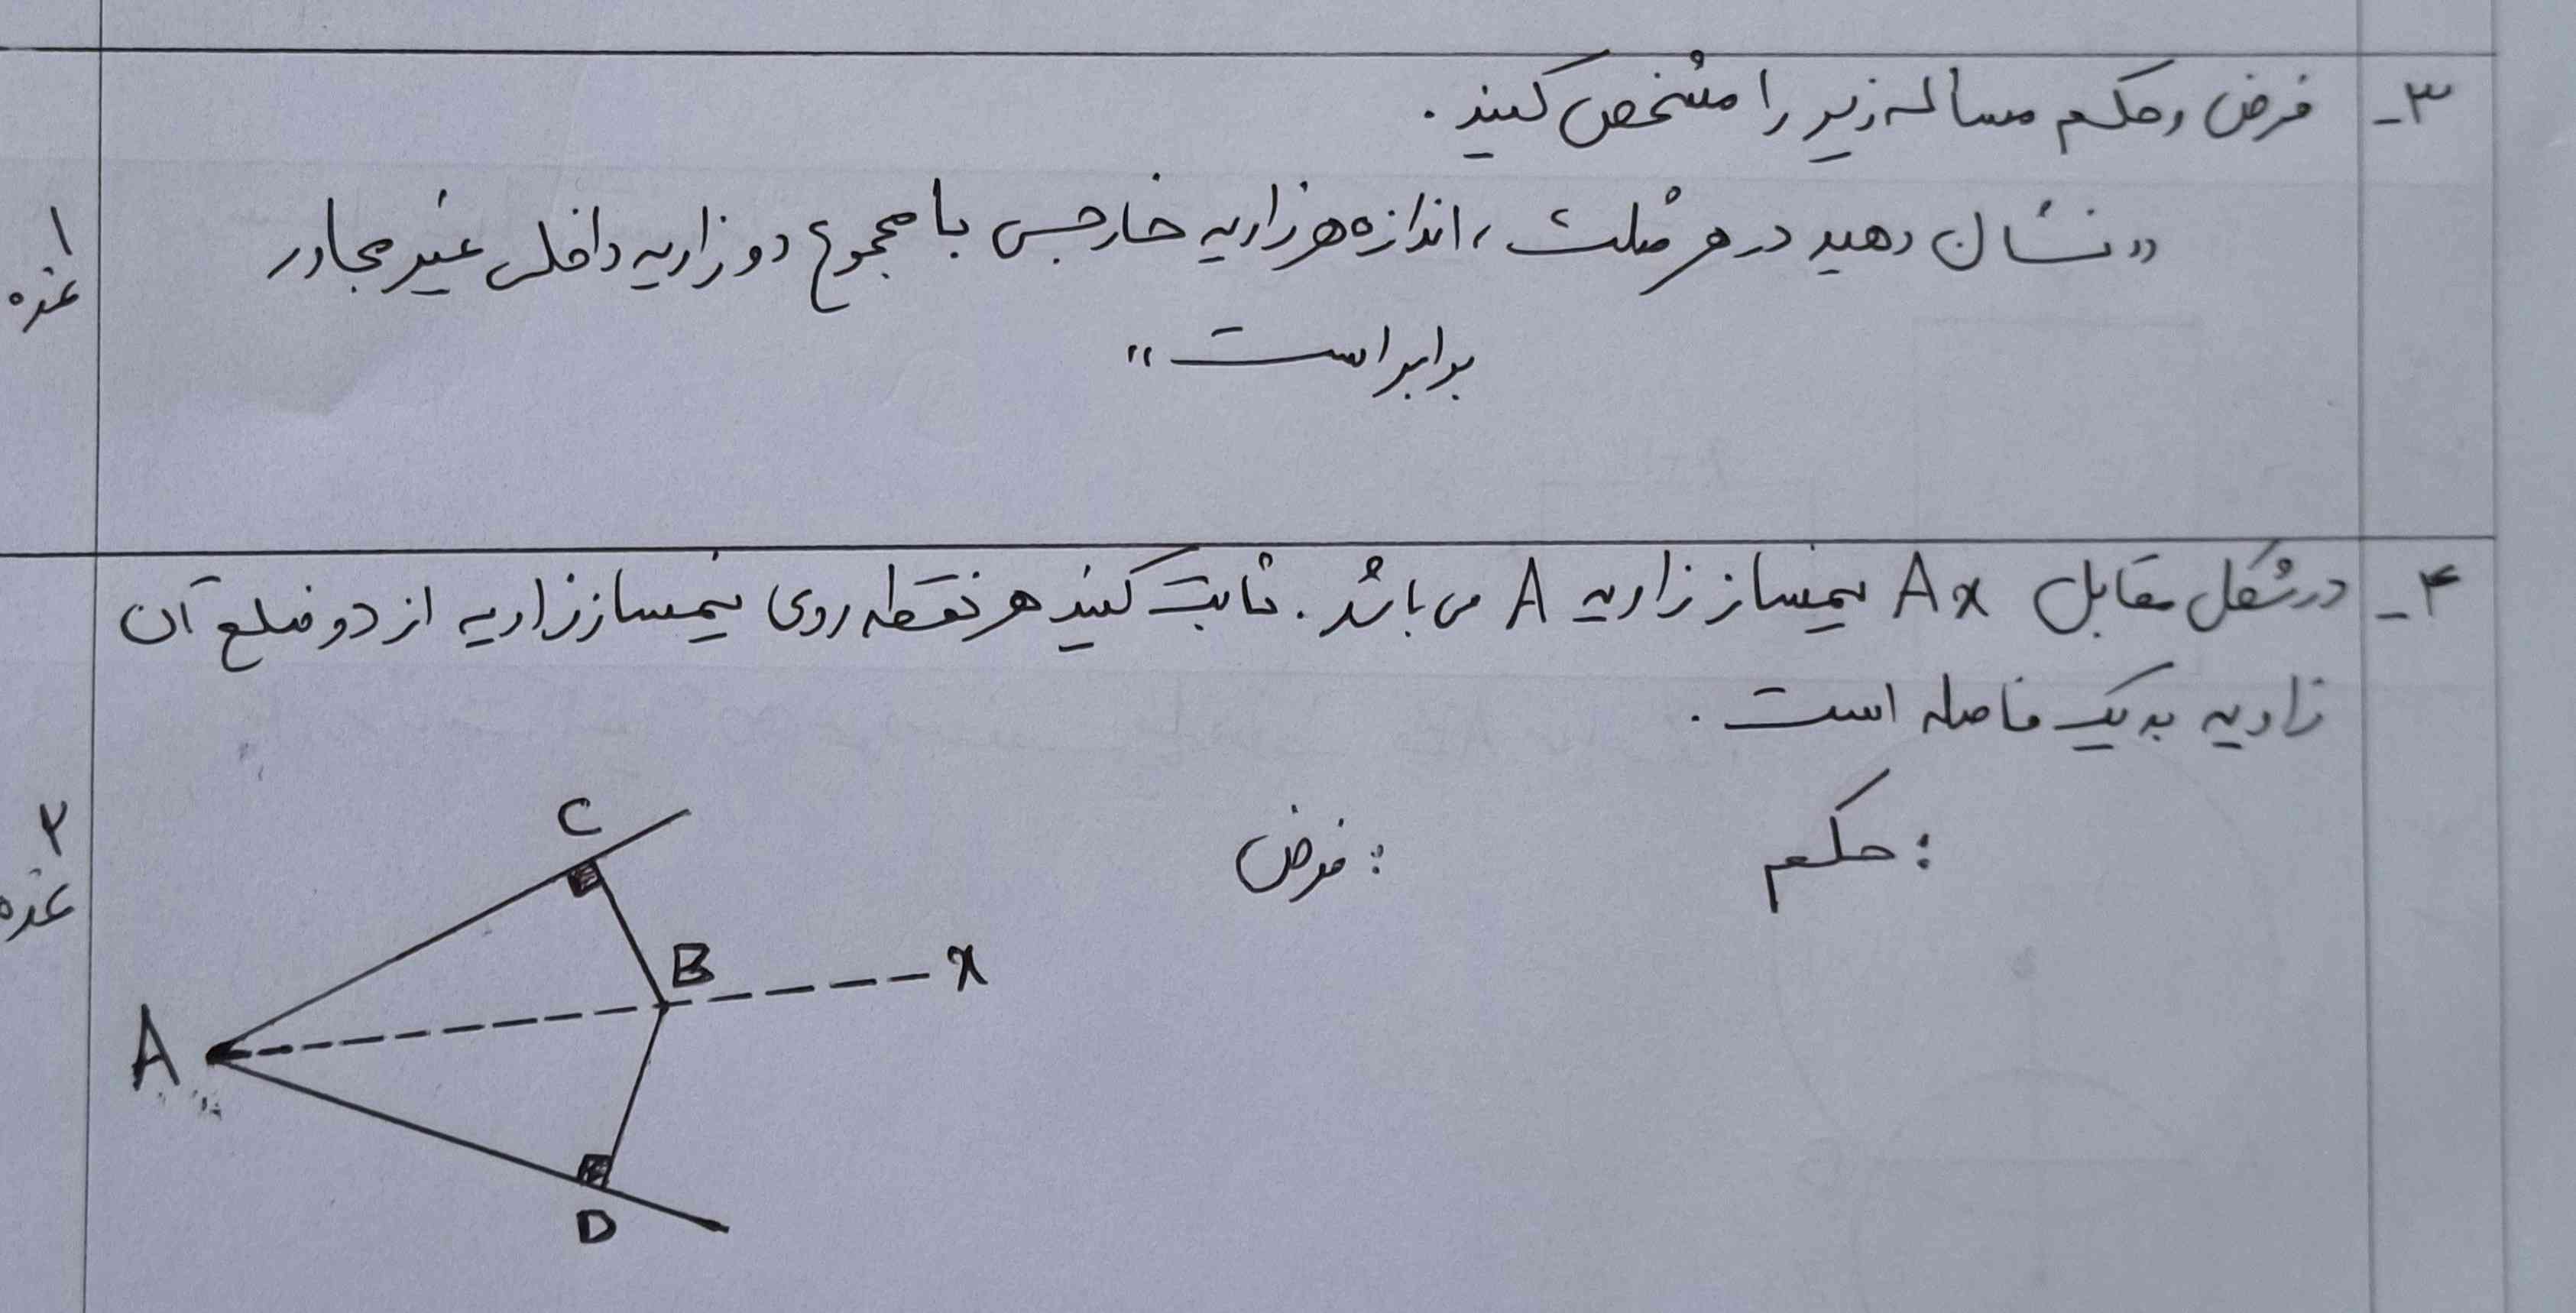 ۳- فرض و حکم مساله زیر را مشخص کنید.
«نشان دهید در هر مثلث، اندازه هر زاویه خارجی با مجموع دو زاویه داخلی غیر مجاور
برابر است»
۱
نمره
۴- در شکل مقابل Ax نیمساز زاویه A می باشد. ثابت کنید هر نقطه روی نیمساز زاویه از دو ضلع آن
زاویه به یک فاصله است.
حکم:
فرض:
۲
نمره
C
B
x
A
D